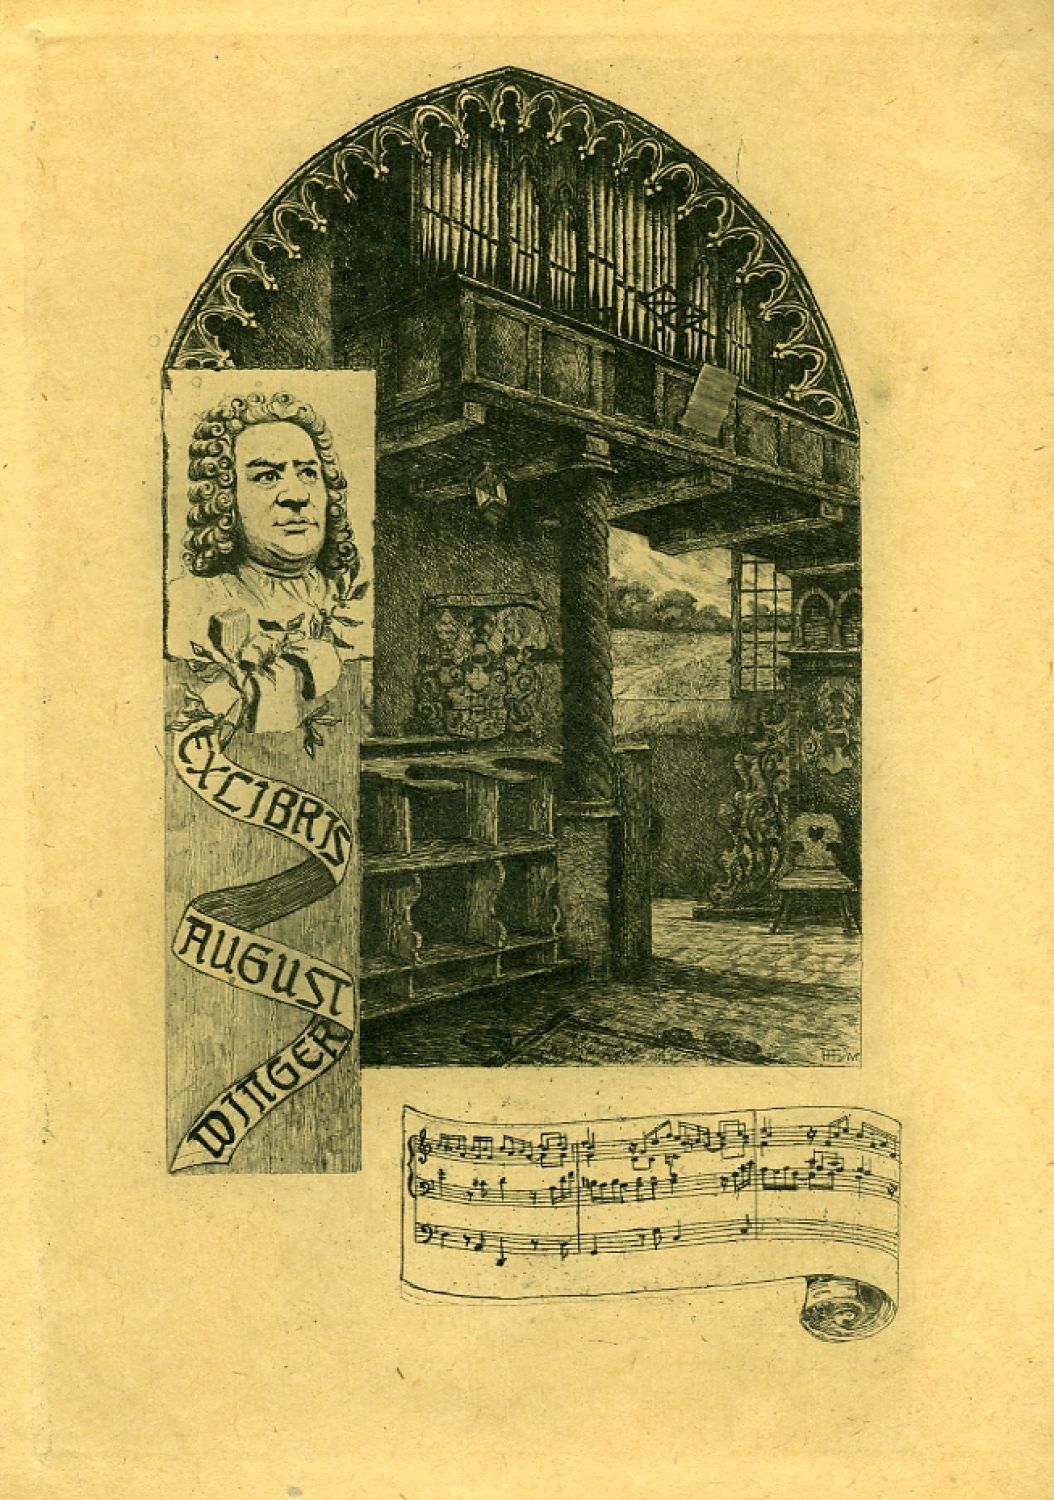 EXLIBRIS
AUGUST
WINGER